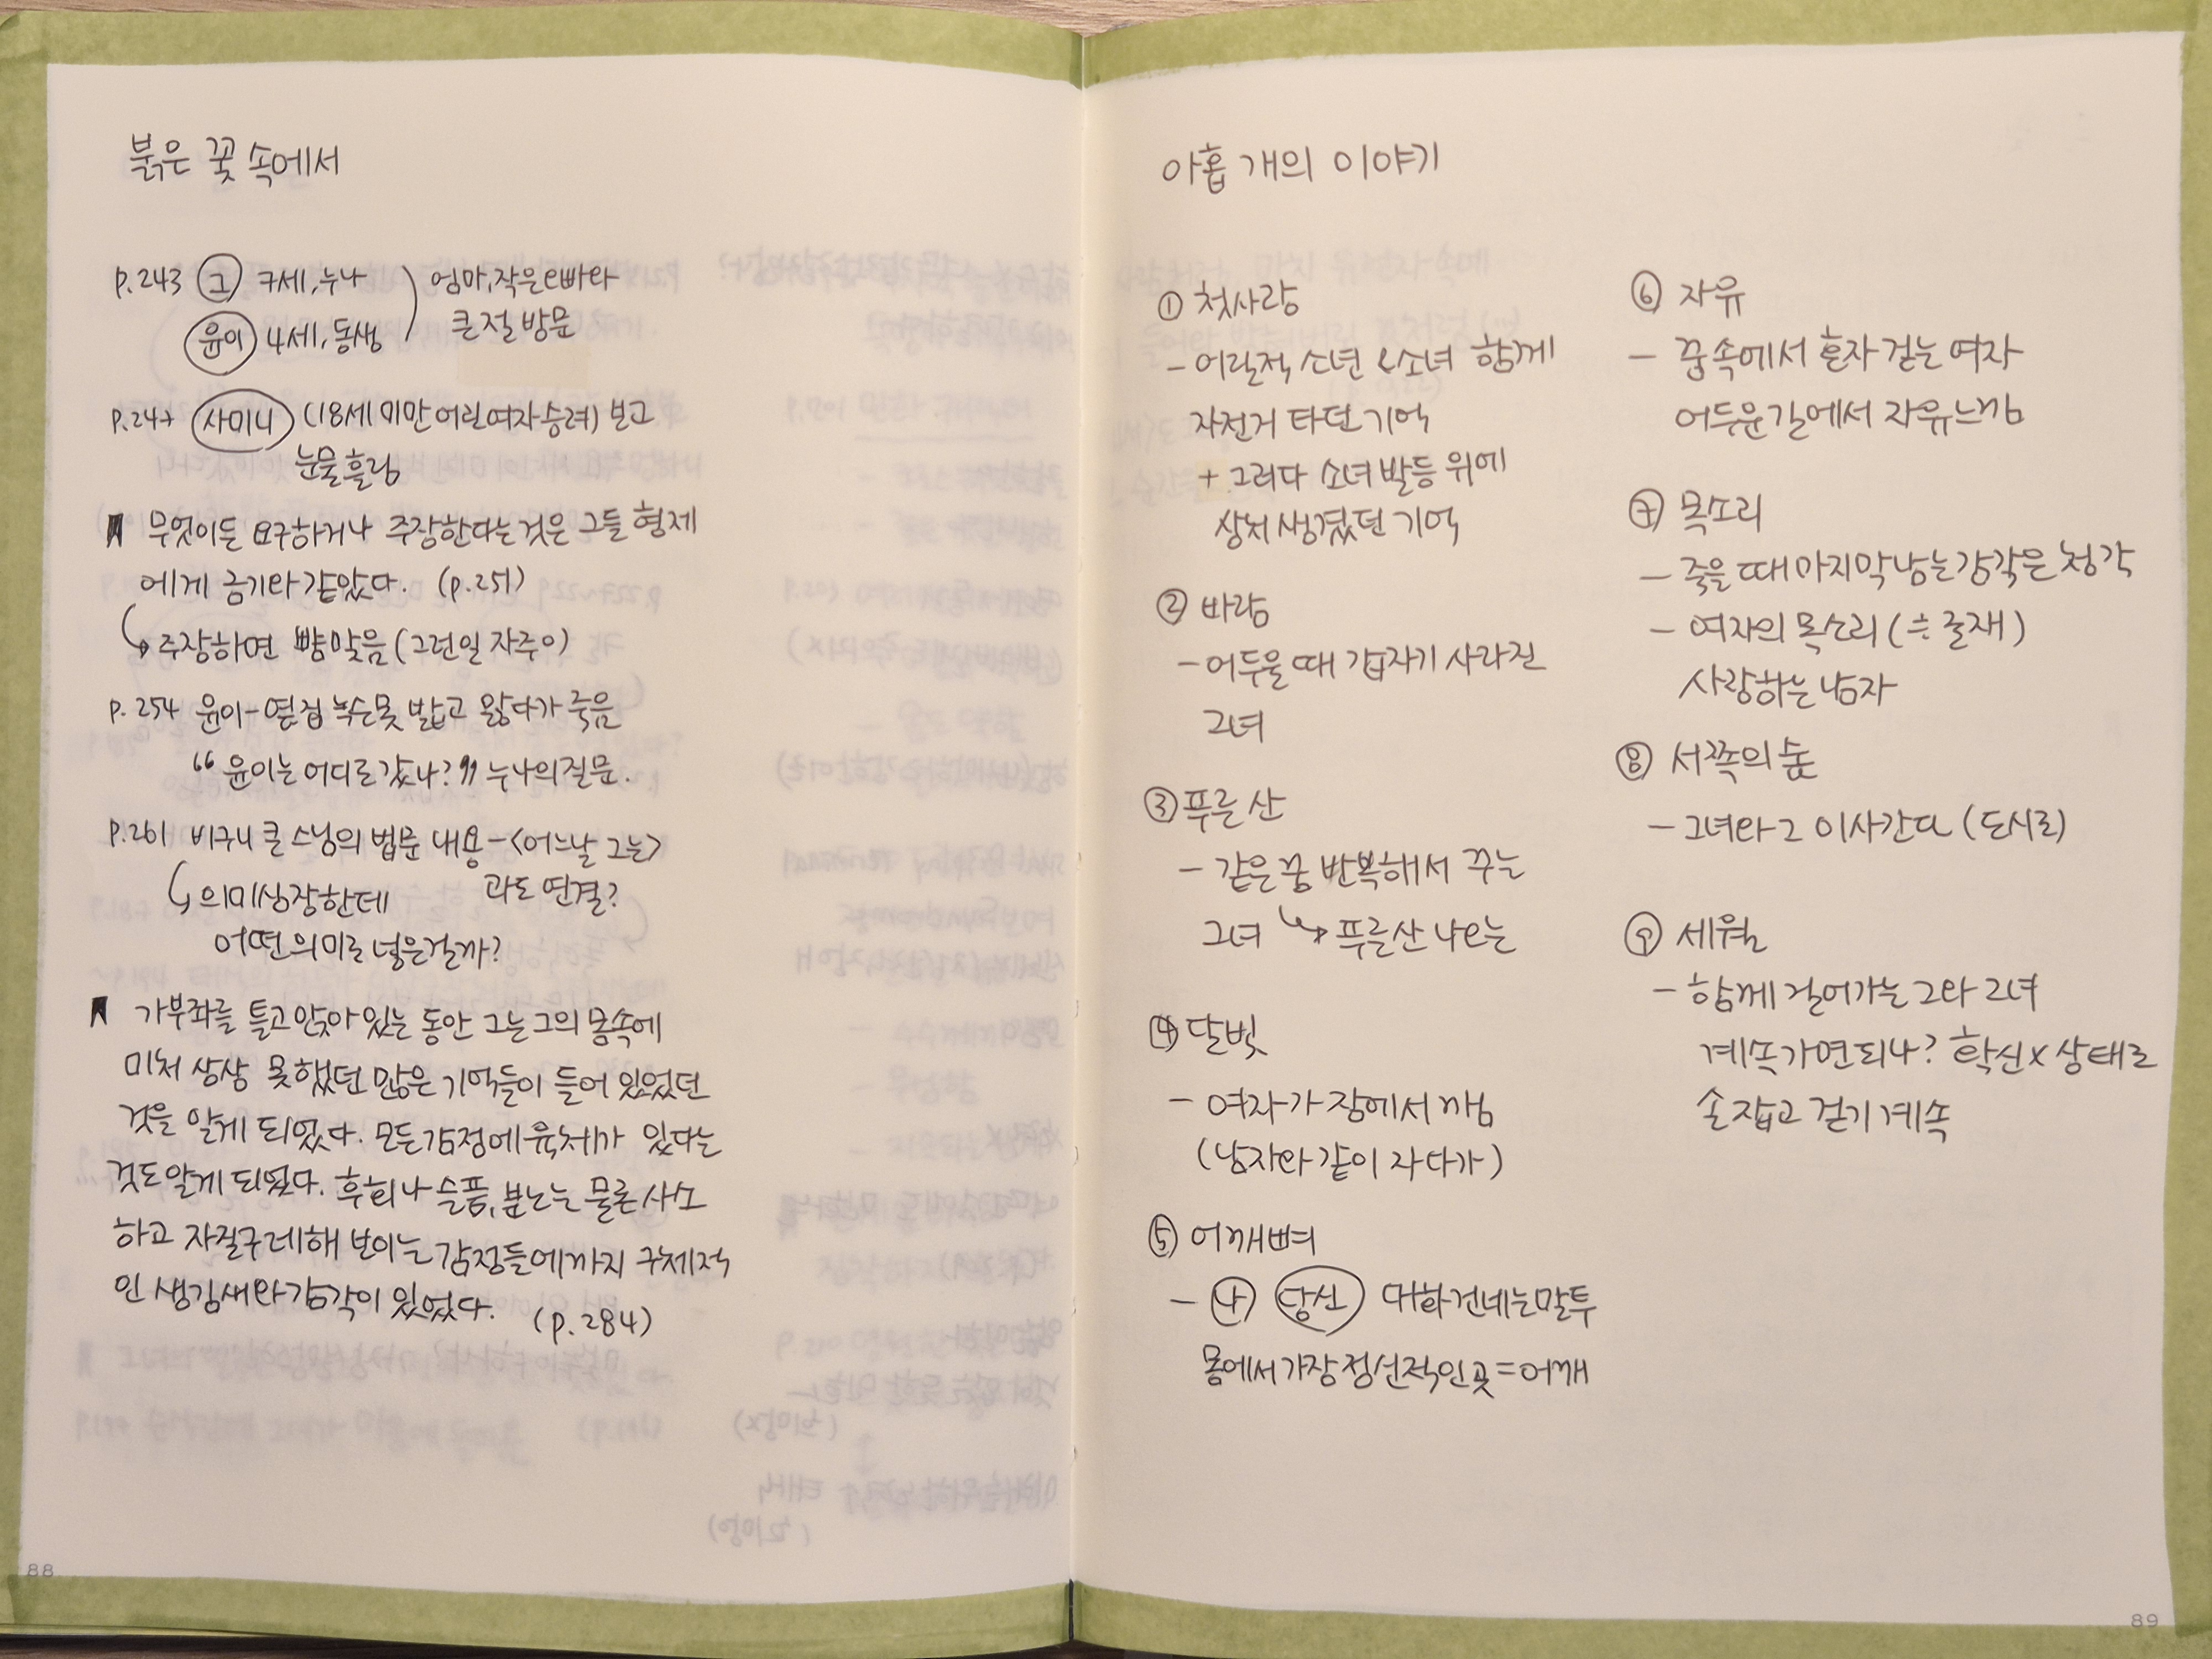 붉은 꽃 속에서
p.243 그 7세, 누나 ) 엄마, 작은오빠와
윤이 4세, 동생 큰절 방문
p.247 사미니 (18세 미만 어린 여자 승려) 보고
눈물 흘림
무엇이든 요구하거나 주장한다는 것은 그들 형제
에게 금기와 같았다. (p.251)
↳ 주장하면 뺨 맞음 (그런일 자주 O)
p. 254 윤이 - 옆집 녹슨 못 밟고 앓다가 죽음
“윤이는 어디로 갔나?” 누나의 질문.
p.261 비구니 큰스님의 법문 내용 - <어느날 그는>
과도 연결?
↳ 의미심장한데
어떤 의미로 넣은걸까?
가부좌를 틀고 앉아 있는 동안 그는 그의 몸속에
미처 상상 못했던 많은 기억들이 들어 있었던
것을 알게 되었다. 모든 감정에 육체가 있다는
것도 알게 되었다. 후회나 슬픔, 분노는 물론 사소
하고 자질구레해 보이는 감정들에까지 구체적
인 생김새와 감각이 있었다. (p.284)
88
아홉 개의 이야기
① 첫사랑
- 어릴적 소년 & 소녀 함께
자전거 타던 기억
+ 그러다 소녀 발등 위에
상처 생겼던 기억
② 바람
- 어두울 때 갑자기 사라진
그녀
③ 푸른 산
- 같은 꿈 반복해서 꾸는
그녀 ↳ 푸른산 나오는
④ 달빛
- 여자가 잠에서 깸
(남자와 같이 자다가)
⑤ 어깨뼈
- 나 당신 대화 건네는 말투
몸에서 가장 정신적인 곳 = 어깨
⑥ 자유
- 꿈속에서 혼자 걷는 여자
어두운 길에서 자유 느낌
⑦ 목소리
- 죽을 때 마지막 남는 감각은 청각
- 여자의 목소리 (≒ 존재)
사랑하는 남자
⑧ 서쪽의 숲
- 그녀와 그 이사간다 (도시로)
⑨ 세월
- 함께 걸어가는 그와 그녀
계속 가면 되나? 확신 X 상태로
손 잡고 걷기 계속
89